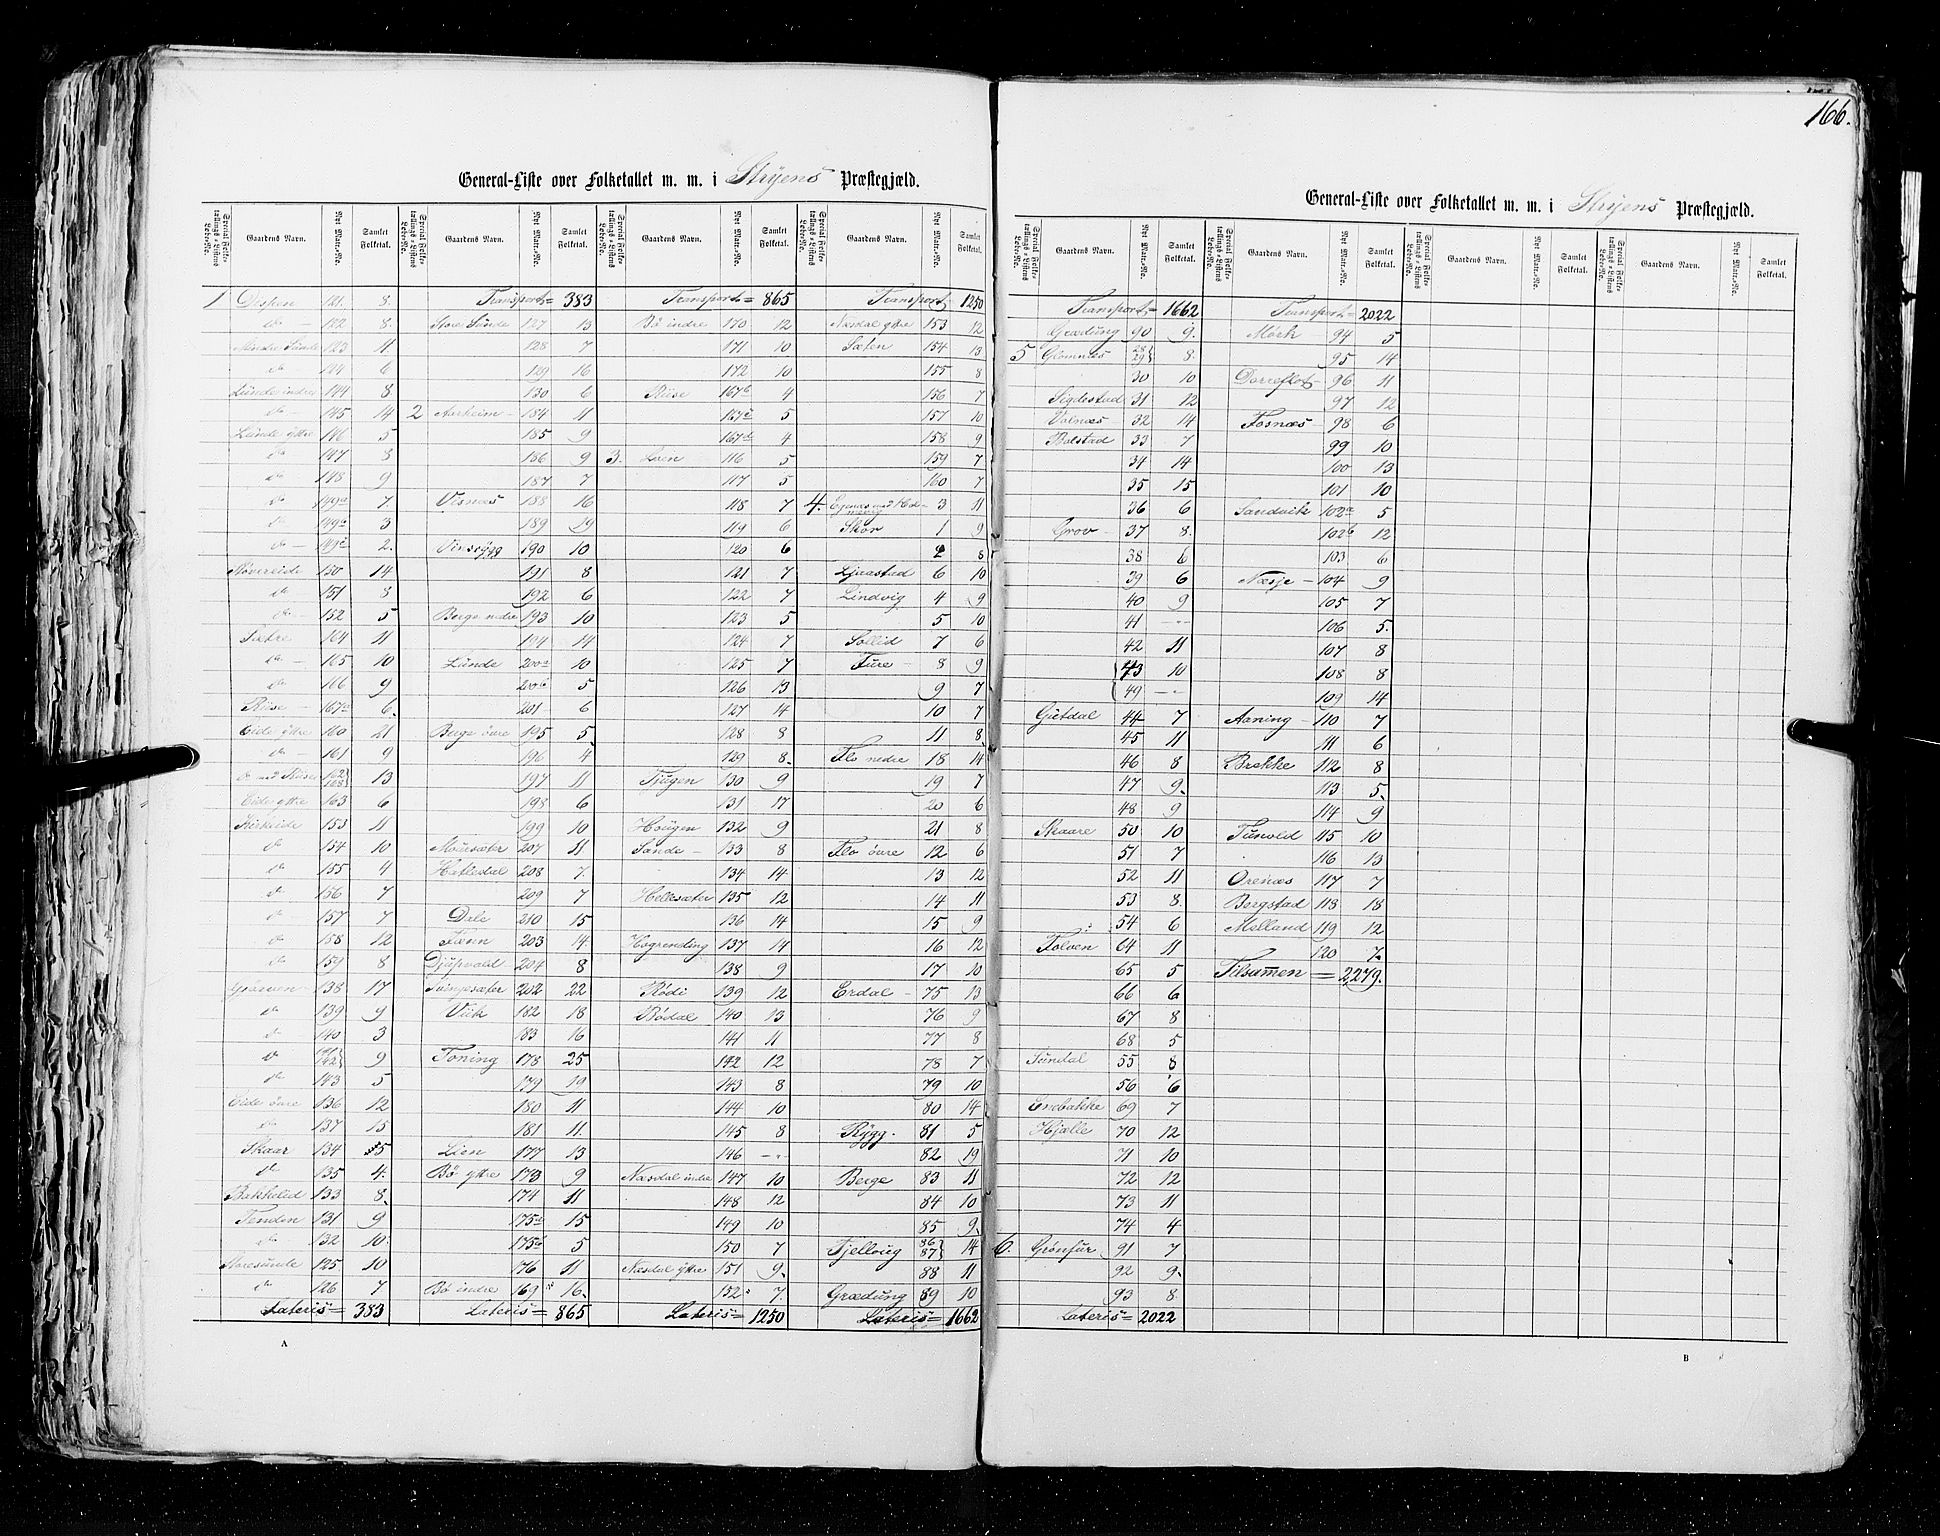 166.
General-Liste over Folketallet m. m. i Stryens Præstegjæld.
Special Folketællings-Listens Løbe-No. Gaardens Navn. Nyt Matr.-No. Samlet Folketal. Special Folketællings-Listens Løbe-No. Gaardens Navn. Nyt Matr.-No. Samlet Folketal. Special Folketællings-Listens Løbe-No. Gaardens Navn. Nyt Matr.-No. Samlet Folketal. Special Folketællings-Listens Løbe-No. Gaardens Navn. Nyt Matr.-No. Samlet Folketal.
1 121. 8. Transport = 383 Transport = 865 Transport 1250
do - 122 8. Store Sunde 127 13 Bø indre 170 12 Næsdal yttre 153 12
Mindre Sunde 123 11. 128 7 171 10 Sæten 154 13
do - 124 6 129 16 172 10 155 8
Lunde indre 144 8 130 6 Riise 167b 4 156 7
do - 145 14 2 Aarheim - 184 11 167c 5 157 10
Lunde yttre 146 5 185 9 167d 4 158 9
do 147 8 186 9 3. Loen 116 5 159 7
do 148 9 187 7 117 5 160 7
do 149a 7. Visnæs 188 16 118 7 4. 3 11
do 149b 3 189 19 119 6 Skor 1 9
do - 149c 2. Vinsrygg 190 10 120 6 2 8
150 14 191 8 121 7 Ljaastad 6 10
do - 151 8 192 6 122 7 Lindvig 4 9
do - 152 5 Berge nedre 193 10 123 5 5 10
Sætre 164 11 194 14 124 7 Sollid 7 6
do - 165 10 Lunde 200a 10 125 7 Ture - 8 9
do 166 9 200b 5 126 13 9 7
Riise - 167a 6. 201 6 127 14 10 7
Eide yttre 160 21 Berge övre 195 5 128 8 11 8
do - 161 9 196 4 129 8. Flo nedre 18 14
do med Riise 162 168 13 197 11 Tjugen 130 9 19 7
Eide yttre 163 6 198 6 131 17 20 6
Kirkeide 153 11 199 10 Hougen 132 9 21 8
do 154 10 207 11 Sande - 133 8 Flo övre 12 6
do 155 4 Hatledal 208 7. 134 14 13 12
do 156 7 209 7 Hellesæter 135 12 14 11
do 157 7 Dale 210 15 136 14 15 9
do 158 12 203 14. Hogrending 137 14 16 12
do 159 8 Djupvold 204 8 138 9 17 10
138 17 Tvingesæter 202 22 Rödi 139 12 Erdal - 75 13
do 139 9 Viik 182 18 Bödal 140 13 76 9
do 140 3 183 16 141 11 77 8
do 141 142 9 Toning 178 25 142 12 78 7
do 143 5 179 19 143 8 79 10
Eide övre 136 12 180 11 144 10 80 14
do 137 15 181 11. 145 8 Rygg. 81 5
Skaar 134 5 Lien 177 13 146 -"- 82 19
do 135 4. Bö yttre 173 9 Næsdal indre 147 10 Berge 83 11
Bakkelid 133 8. 174 11 148 12 84 10
Tenden 131 9 175a 15 149 10 85 9.
do - 132 10. 175b 5 150 7 Fjellvug 86 87 14
Storesunde 125 10 176 11 Næsdal yttre 151 9. 88 11
do 126 7 Bö indre 169 16. 152 7. Grædung 89 10
Lateris = 383 Lateris = 865 Lateris = 1250 Lateris = 1662
A
General-Liste over Folketallet m. m. i Stryens Præstegjæld.
Special Folketællings-Listens Løbe-No. Gaardens Navn. Nyt Matr.-No. Samlet Folketal. Special Folketællings-Listens Løbe-No. Gaardens Navn. Nyt Matr.-No. Samlet Folketal. Special Folketællings-Listens Løbe-No. Gaardens Navn. Nyt Matr.-No. Samlet Folketal. Special Folketællings-Listens Løbe-No. Gaardens Navn. Nyt Matr.-No. Samlet Folketal.
Transport = 1662 Transport = 2022
Grædung 90 9. Mörk 94 5
5 Glomnes 28 29 8. 95 14
30 10 Dorreflot - 96 11
Sigdestad 31 12 97 12
Volnæs 32 14 Fosnæs 98 6
Bolstad 33 7 99 10
34 14 100 13
35 15 101 10
36 6 Sandvik 102a 5
Grov 37 8. 102b 12
38 6 103 6
39 6 Næsje - 104 9
40 9 105 7
41 -"- 106 5.
42 11 107 8
43 10 108 8
49 -"- 109 14
Gietdal 44 7 Aaning - 110 7
45 11 111 6
46 8 Brekke 112 8
47 9. 113 5.
48 9 114 9
Skaare 50 10 Tunold 115 10
51 7 116 13
52 11 Orenæs 117 7
53 8. Bergstad 118 18
54 6 Melland 119 12
Folven 64 11 120 7.
65 5 Tilsamen = 2279.
66 6
67 8
68 5
Sundal 55 8
56 6
69 7
Hjælle 70 12
71 10
72 12
73 11
74 4
6. Grönfur 91 7
92 9.
93 8
Lateris = 2022
B